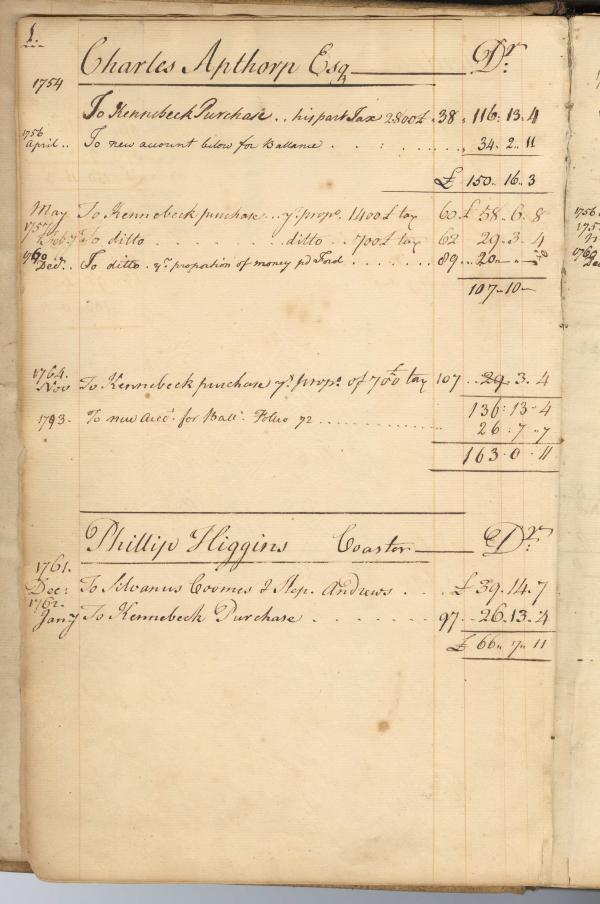 1.
Charles Apthorp Esq Dr.
1754
To Kennebeck Purchase .. his part Tax 2800£ . 38 . 116 . 13 . 4
1756
April .. To new account below for Ballance . . : . . . . . . 34 . 2 .. 11
£ 150 .. 16 .. 3
May To Kennebeck purchase ... yr. propo. 1400£ tax 60 £ 58 . 6 . 8
1757
Feb. 7 To ditto . . . . . . . . . . ditto .. 700£ tax 62 29 . 3 . 4
1760
Decr. .. To ditto .. yr. proportion of money pd Ford . . . . . . . 89 .. 20 .. — .. —
107 .. 10 —
1764.
Nov To Kennebeck purchase yr. propo. of 700£ tax 107 .. 29 . 3 . 4
136 : 13 . 4
1793 . To new Acct. for Balle. Folio 72 . . . . . . . . . . . . . 26 . 7 .. 7
163 . 0 . 11
Phillip Higgins Coaster Dr.
1761.
Decr To Silvanus Coomes & Step. Andrews . . . . £ 39 . 14 . 7
1762.
Jany To Kennebeck Purchase . . . . . . . . 97 .. 26 . 13 . 4
£ 66 .. 7 .. 11
1756
1757
1760
Dec